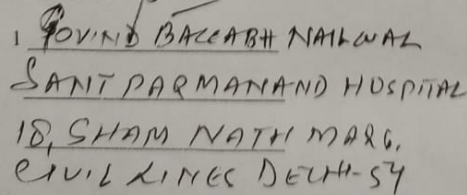 1 GOVIND BALLABH NAILWAL
SANT PARMANAND HOSPITAL
18, SHAM NATH MARG,
CIVIL LINES DELHI-54